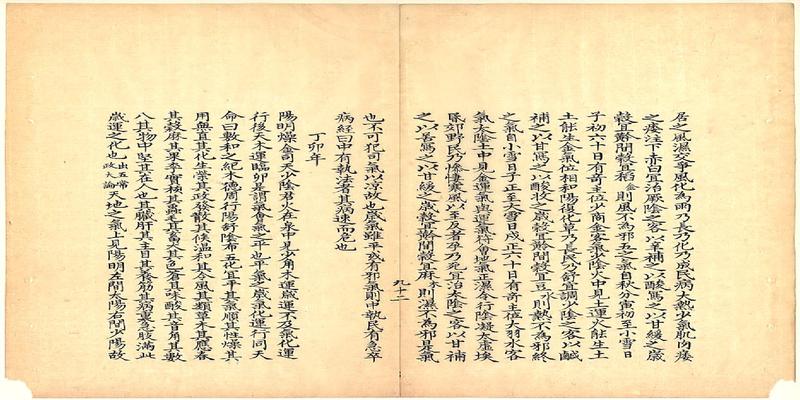 居之風濕交爭風化為雨乃長乃化乃成民病大熱少氣肌肉痿
之痿注下赤白宜治厥陰之客以辛補之以酸寫之以甘緩之歲
穀宜黅間穀宜稻金則風不為邪五之氣自秋分寅初至小雪日
子初六十日有奇主位少商金客氣少陰火中見土運火能生土
土能生金氣位相和陽復化草乃長民乃舒宜調少陰之客以鹹
補之以甘寫之以酸收之歲穀宜黅間穀宜豆水則熱不為邪終
之氣自小雪日子正至大雪日戌正六十日有奇主位太羽水客
氣太陰土中見金運氣與運氣符會地氣正濕令行陰凝太虛埃
昏郊野民乃慘悽寒風以至反者孕乃死宜治太陰之客以甘補
之以苦寫之以甘緩之歲穀宜黅間穀宜麻木則濕不為邪是氣
九十二
也不可犯司氣以涼故也歲氣雖平或有邪氣則中執民有急卒
病經曰中有執法者其病速而危也
丁卯年
陽明燥金司天少陰君火在泉中見少角木運歲運不及氣化運
行後天木運臨卯是謂歲會氣之平也平氣之歲氣化運行同天
命曰數和之紀木德周行陽舒陰布五化宜平其氣順其性燥其
用曲直其化生榮其政發散其候溫和其令風其類草木其應春
其穀麻其果李其實核其蟲毛其畜犬其色蒼其味酸其音角其數
八其物中堅其在人也其臟肝其主目其養筋其病裏急肢滿此
歲運之化也出五常政大論天地之氣上見陽明左間太陽右間少陽故